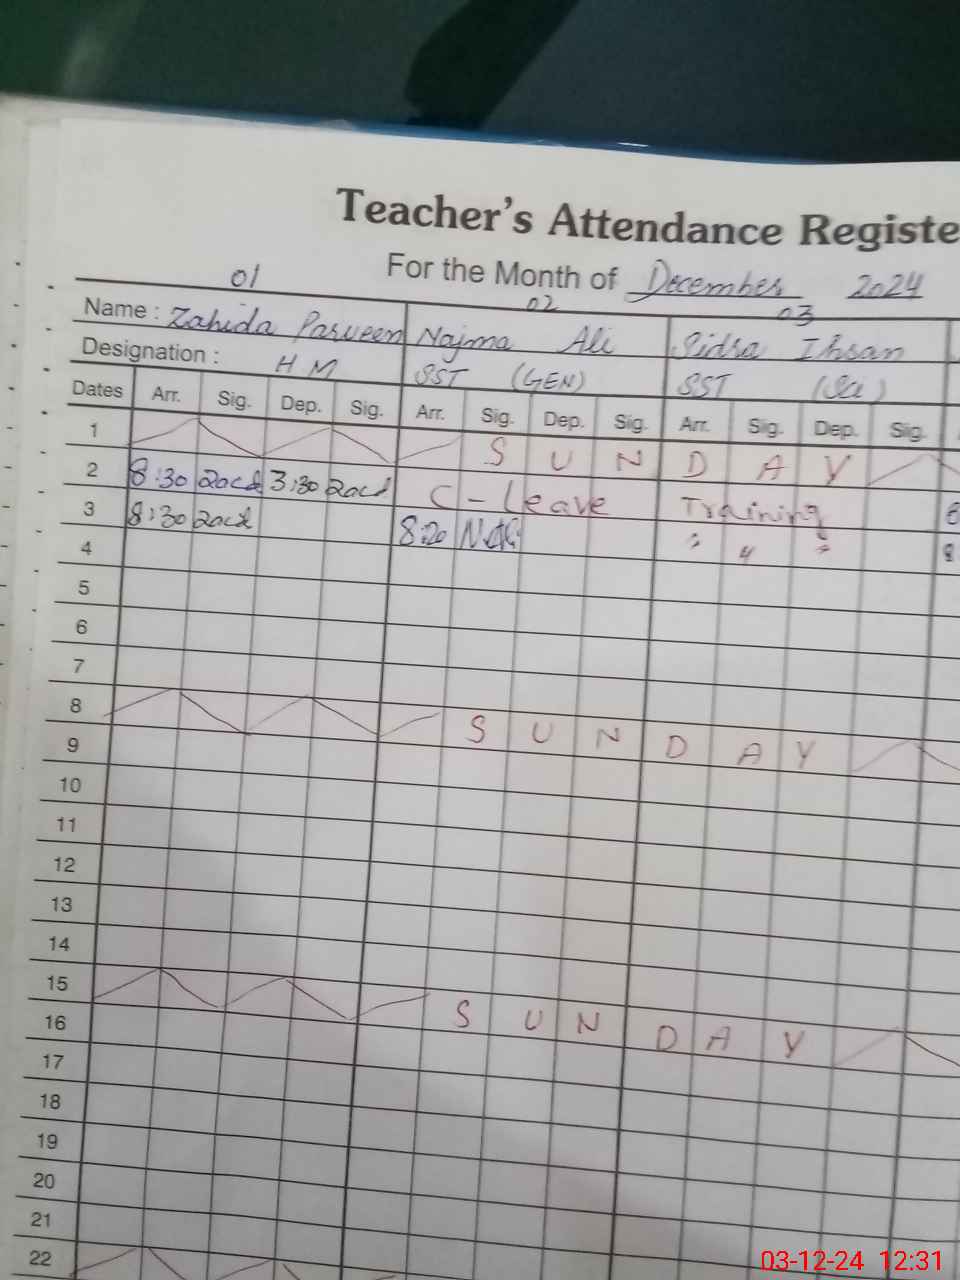 Teacher's Attendance Registe
For the Month of December 2024
01 02 03
Name : Zahida Parveen Najma Ali Sidra Ihsan
Designation : H M SST (GEN) SST (Sci)
Dates Arr. Sig. Dep. Sig. Arr. Sig. Dep. Sig. Arr. Sig. Dep. Sig.
1 S U N D A Y
2 8:30 3:30 C - Leave Training
3 8:30 8:20 " " "
4
5
6
7
8 S U N D A Y
9
10
11
12
13
14
15 S U N D A Y
16
17
18
19
20
21
22
03-12-24 12:31